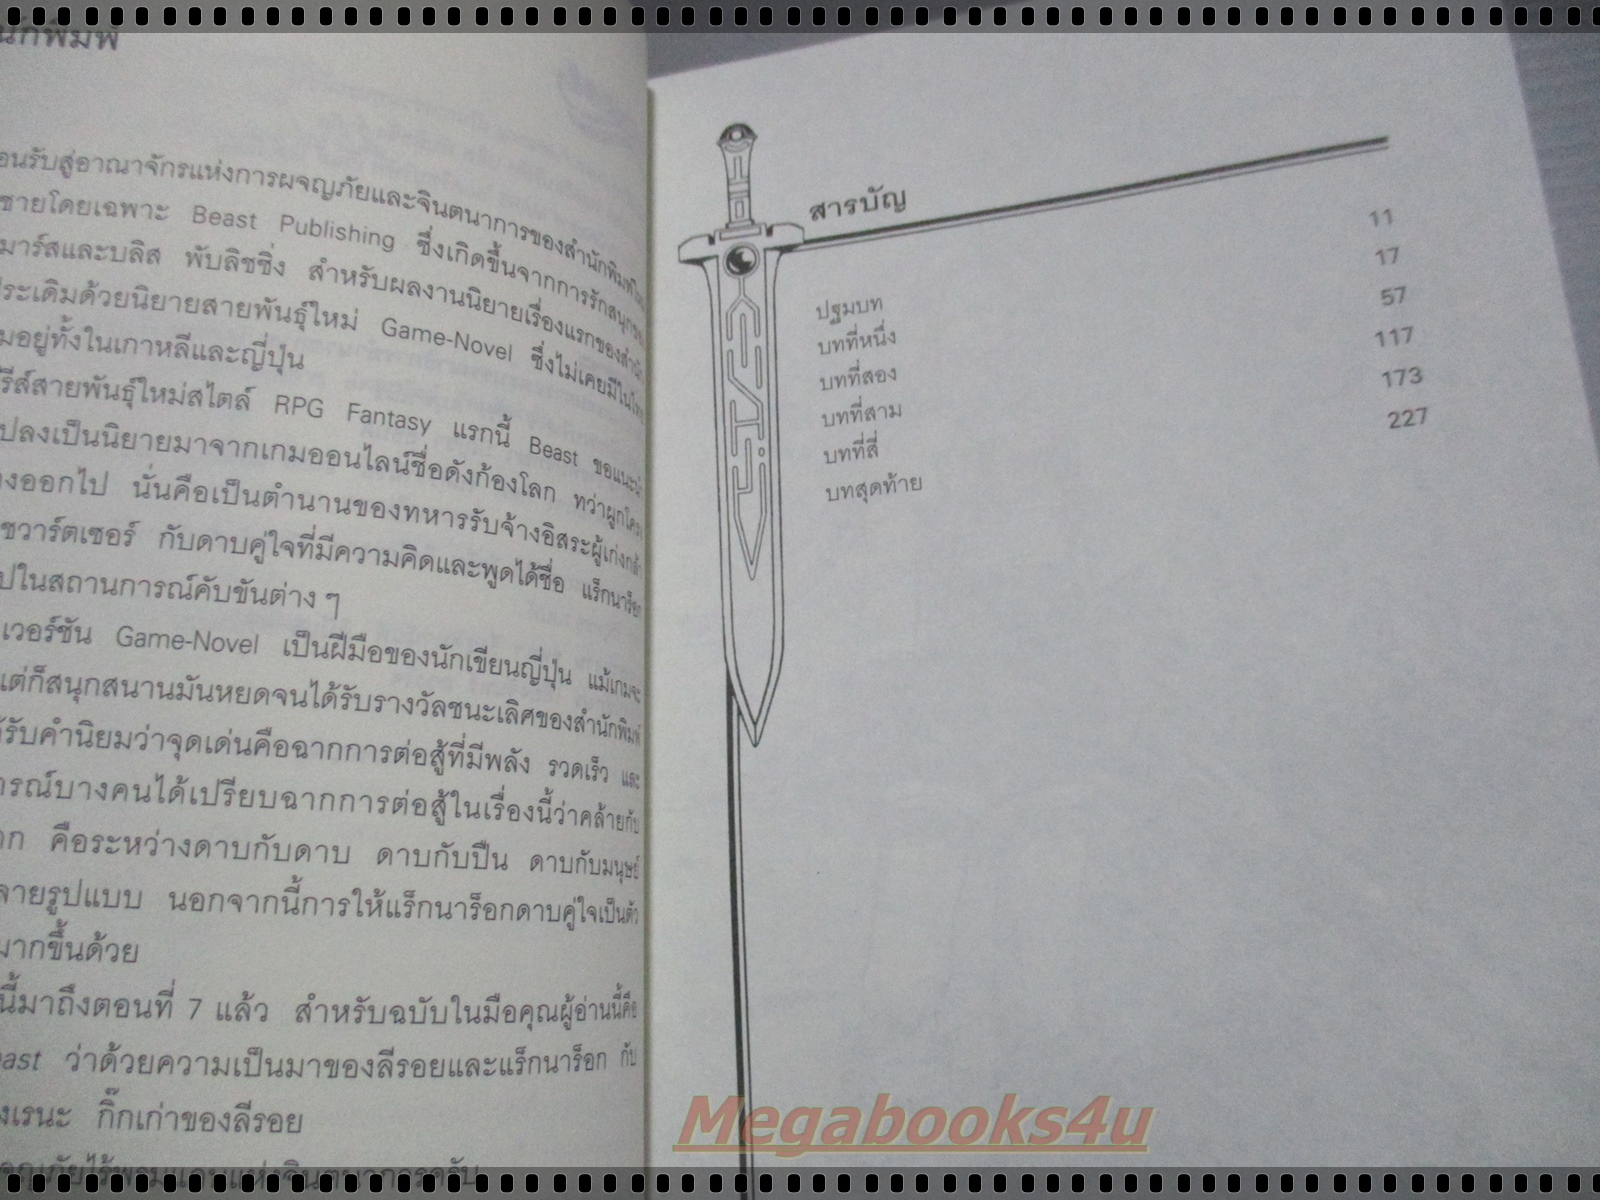 นักพิมพ์
อนรับสู่อาณาจักรแห่งการผจญภัยและจินตนาการของสำนักพิมพ์
ชายโดยเฉพาะ Beast Publishing ซึ่งเกิดขึ้นจากการรักสนุก
มาร์สและบลิส พับลิชชิ่ง สำหรับผลงานนิยายเรื่องแรกของสำนัก
ประเดิมด้วยนิยายสายพันธุ์ใหม่ Game-Novel ซึ่งไม่เคยมีใน
มอยู่ทั้งในเกาหลีและญี่ปุ่น
รีส์สายพันธุ์ใหม่สไตล์ RPG Fantasy แรกนี้ Beast ขอแนะนำ
ปลงเป็นนิยายมาจากเกมออนไลน์ชื่อดังก้องโลก ทว่าผูกโครง
งออกไป นั่นคือเป็นตำนานของทหารรับจ้างอิสระผู้เก่งกล้า
ชวาร์ตเซอร์ กับดาบคู่ใจที่มีความคิดและพูดได้ชื่อ แร็กนาร็อก
ปในสถานการณ์คับขันต่าง ๆ
เวอร์ชัน Game-Novel เป็นฝีมือของนักเขียนญี่ปุ่น แม้เกมจะ
แต่ก็สนุกสนานมันหยดจนได้รับรางวัลชนะเลิศของสำนักพิมพ์
ด้รับคำนิยมว่าจุดเด่นคือฉากการต่อสู้ที่มีพลัง รวดเร็ว และ
ารณ์บางคนได้เปรียบฉากการต่อสู้ในเรื่องนี้ว่าคล้ายกับ
าก คือระหว่างดาบกับดาบ ดาบกับปืน ดาบกับมนุษย์
ลายรูปแบบ นอกจากนี้การให้แร็กนาร็อกดาบคู่ใจเป็นตัว
มากขึ้นด้วย
นี้มาถึงตอนที่ 7 แล้ว สำหรับฉบับในมือคุณผู้อ่านนี้คือ
east ว่าด้วยความเป็นมาของลีรอยและแร็กนาร็อก กับ
งเรนะ กิ๊กเก่าของลีรอย
จญภัยไร้พรมแดนแห่งจินตนาการครับ
สารบัญ
ปฐมบท 11
บทที่หนึ่ง 17
บทที่สอง 57
บทที่สาม 117
บทที่สี่ 173
บทสุดท้าย 227
Megabooks4u